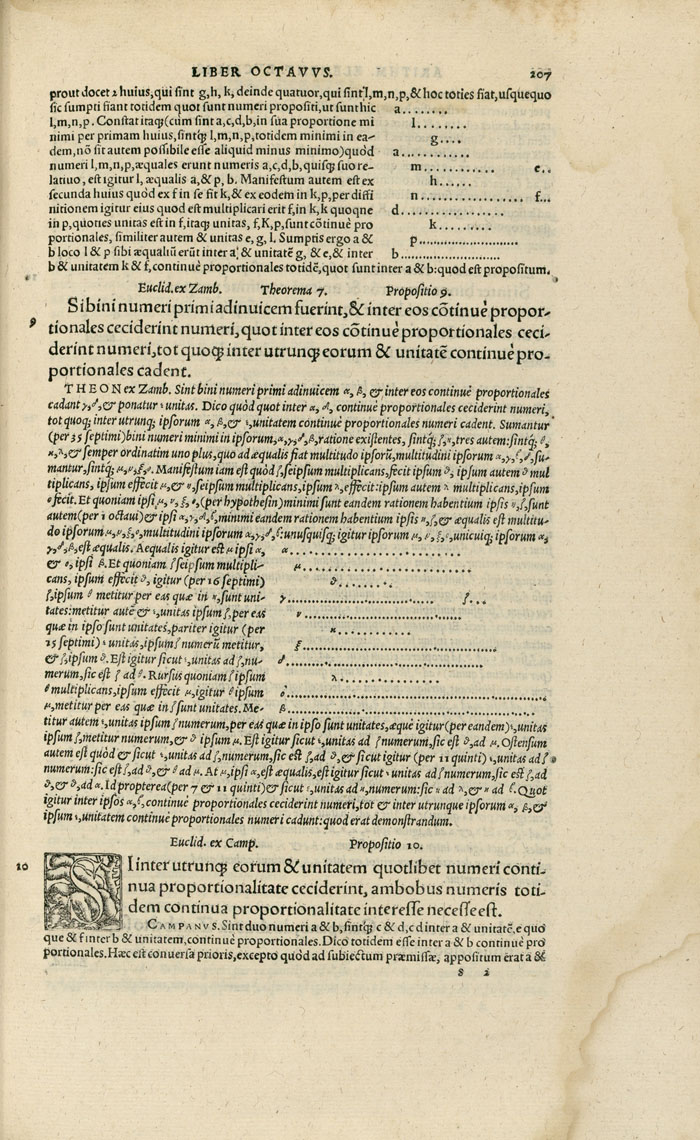 LIBER OCTAVVS. 207
prout docet 2 huius, qui sint g, h, k, deinde quatuor, qui sint l, m, n, p, & hoc toties fiat, usquequo
sic sumpti fiant totidem quot sunt numeri propositi, ut sunt hic a........
l, m, n, p. Constat itaq; (cum sint a, c, d, b, in sua proportione mi l........
nimi per primam huius, sintq; l, m, n, p, totidem minimi in ea- g....
dem, nõ sit autem possibile esse aliquid minus minimo) quòd a............
numeri l, m, n, p, æquales erunt numeris a, c, d, b, quisq; suo re- m............ e..
latiuo, est igitur l, æqualis a, & p, b. Manifestum autem est ex h......
secunda huius quòd ex f in se fit k, & ex eodem in k, p, per diffi n.................. f...
nitionem igitur eius quod est multiplicari erit f, in k, k quoqne d..................
in p, quoties unitas est in f, itaq; unitas, f, K, p, sunt cõtinuè pro k.........
portionales, similiter autem & unitas e, g, l. Sumptis ergo a & p...........................
b loco l & p sibi æqualiũ erũt inter a, & unitatẽ g, & e, & inter b...........................
b & unitatem k & f, continuè proportionales totidẽ, quot sunt inter a & b: quod est propositum.
Euclid. ex Zamb. Theorema 7. Propositio 9.
9 Si bini numeri primi adinuicem fuerint, & inter eos cõtinuè propor-
tionales ceciderint numeri, quot inter eos cõtinuè proportionales ceci-
derint numeri, tot quoq; inter utrunq; eorum & unitatẽ continuè pro-
portionales cadent.
THEON ex Zamb. Sint bini numeri primi adinuicem α, β, & inter eos continuè proportionales
cadant γ, δ, & ponatur ε unitas. Dico quòd quot inter α, β, continuè proportionales ceciderint numeri,
tot quoq; inter utrunq; ipsorum α, β, & ε, unitatem continuè proportionales numeri cadent. Sumantur
(per 35 septimi) bini numeri minimi in ipsorum, α, γ, δ, β, ratione existentes, sintq; ζ, η, tres autem: sintq; θ,
κ, λ, & semper ordinatim uno plus, quo ad æqualis fiat multitudo ipsorũ, multitudini ipsorum α, γ, δ, β, su-
mantur, sintq; μ, ν, ξ, ο. Manifestum iam est quòd ζ, seipsum multiplicans, fecit ipsum θ, ipsum autem θ mul
tiplicans, ipsum effecit μ, & η, seipsum multiplicans, ipsum λ, effecit: ipsum autem λ multiplicans, ipsum
ο fecit. Et quoniam ipsi μ, ν, ξ, ο, (per hypothesin) minimi sunt eandem rationem habentium ipsis η, ζ, sunt
autem (per 1 octaui) & ipsi α, γ, δ, β, minimi eandem rationem habentium ipsis η, ζ, & æqualis est multitu-
do ipsorum μ, ν, ξ, ο, multitudini ipsorum α, γ, δ, β: unusquisq; igitur ipsorum μ, ν, ξ, ο, unicuiq; ipsorum α,
γ, δ, β, est æqualis. Aequalis igitur est μ ipsi α, α.
& ο, ipsi β. Et quoniam ζ seipsum multipli- μ.
cans, ipsum effecit θ, igitur (per 16 septimi) θ.
ζ, ipsum θ metitur per eas quæ in ζ, sunt uni- γ. ζ...
tates: metitur autẽ & ε, unitas ipsum ζ, per eas ν.
quæ in ipso sunt unitates, pariter igitur (per κ.
15 septimi) ε unitas, ipsum ζ numerũ metitur, ξ.
& ζ, ipsum θ. Est igitur sicut ε, unitas ad ζ, nu- δ.
merum, sic est ζ ad θ. Rursus quoniam ζ ipsum λ.
θ multiplicans, ipsum effecit μ, igitur θ ipsum ο.
μ, metitur per eas quæ in ζ sunt unitates. Me- β.
titur autem ε, unitas ipsum ζ numerum, per eas quæ in ipso sunt unitates, æquè igitur (per eandem) ε, unitas
ipsum ζ, metitur numerum, & θ ipsum μ. Est igitur sicut ε, unitas ad ζ numerum, sic est θ, ad μ. Ostensum
autem est quòd & sicut ε, unitas ad ζ, numerum, sic est ζ, ad θ, & sicut igitur (per 11 quinti) ε, unitas ad ζ
numerum: sic est ζ, ad θ, & θ ad μ. At μ, ipsi α, est æqualis, est igitur sicut ε unitas ad ζ numerum, sic est ζ, ad
θ, & θ, ad α. Id propterea (per 7 & 11 quinti) & sicut ε, unitas ad η, numerum: sic η ad λ, & λ ad β. Quot
igitur inter ipsos α, β, continuè proportionales ceciderint numeri, tot & inter utrunque ipsorum α, β, &
ipsum ε, unitatem continuè proportionales numeri cadunt: quod erat demonstrandum.
Euclid. ex Camp. Propositio 10.
10 SI inter utrunq; eorum & unitatem quotlibet numeri conti-
nua proportionalitate ceciderint, ambobus numeris toti-
dem continua proportionalitate interesse necesse est.
CAMPANVS. Sint duo numeri a & b, sintq; c & d, c d inter a & unitatẽ, e quo
que & f inter b & unitatem, continuè proportionales. Dico totidem esse inter a & b continuè pro
portionales. Hæc est conuersa prioris, excepto quòd ad subiectum præmissæ, appositum erat a &
s 2